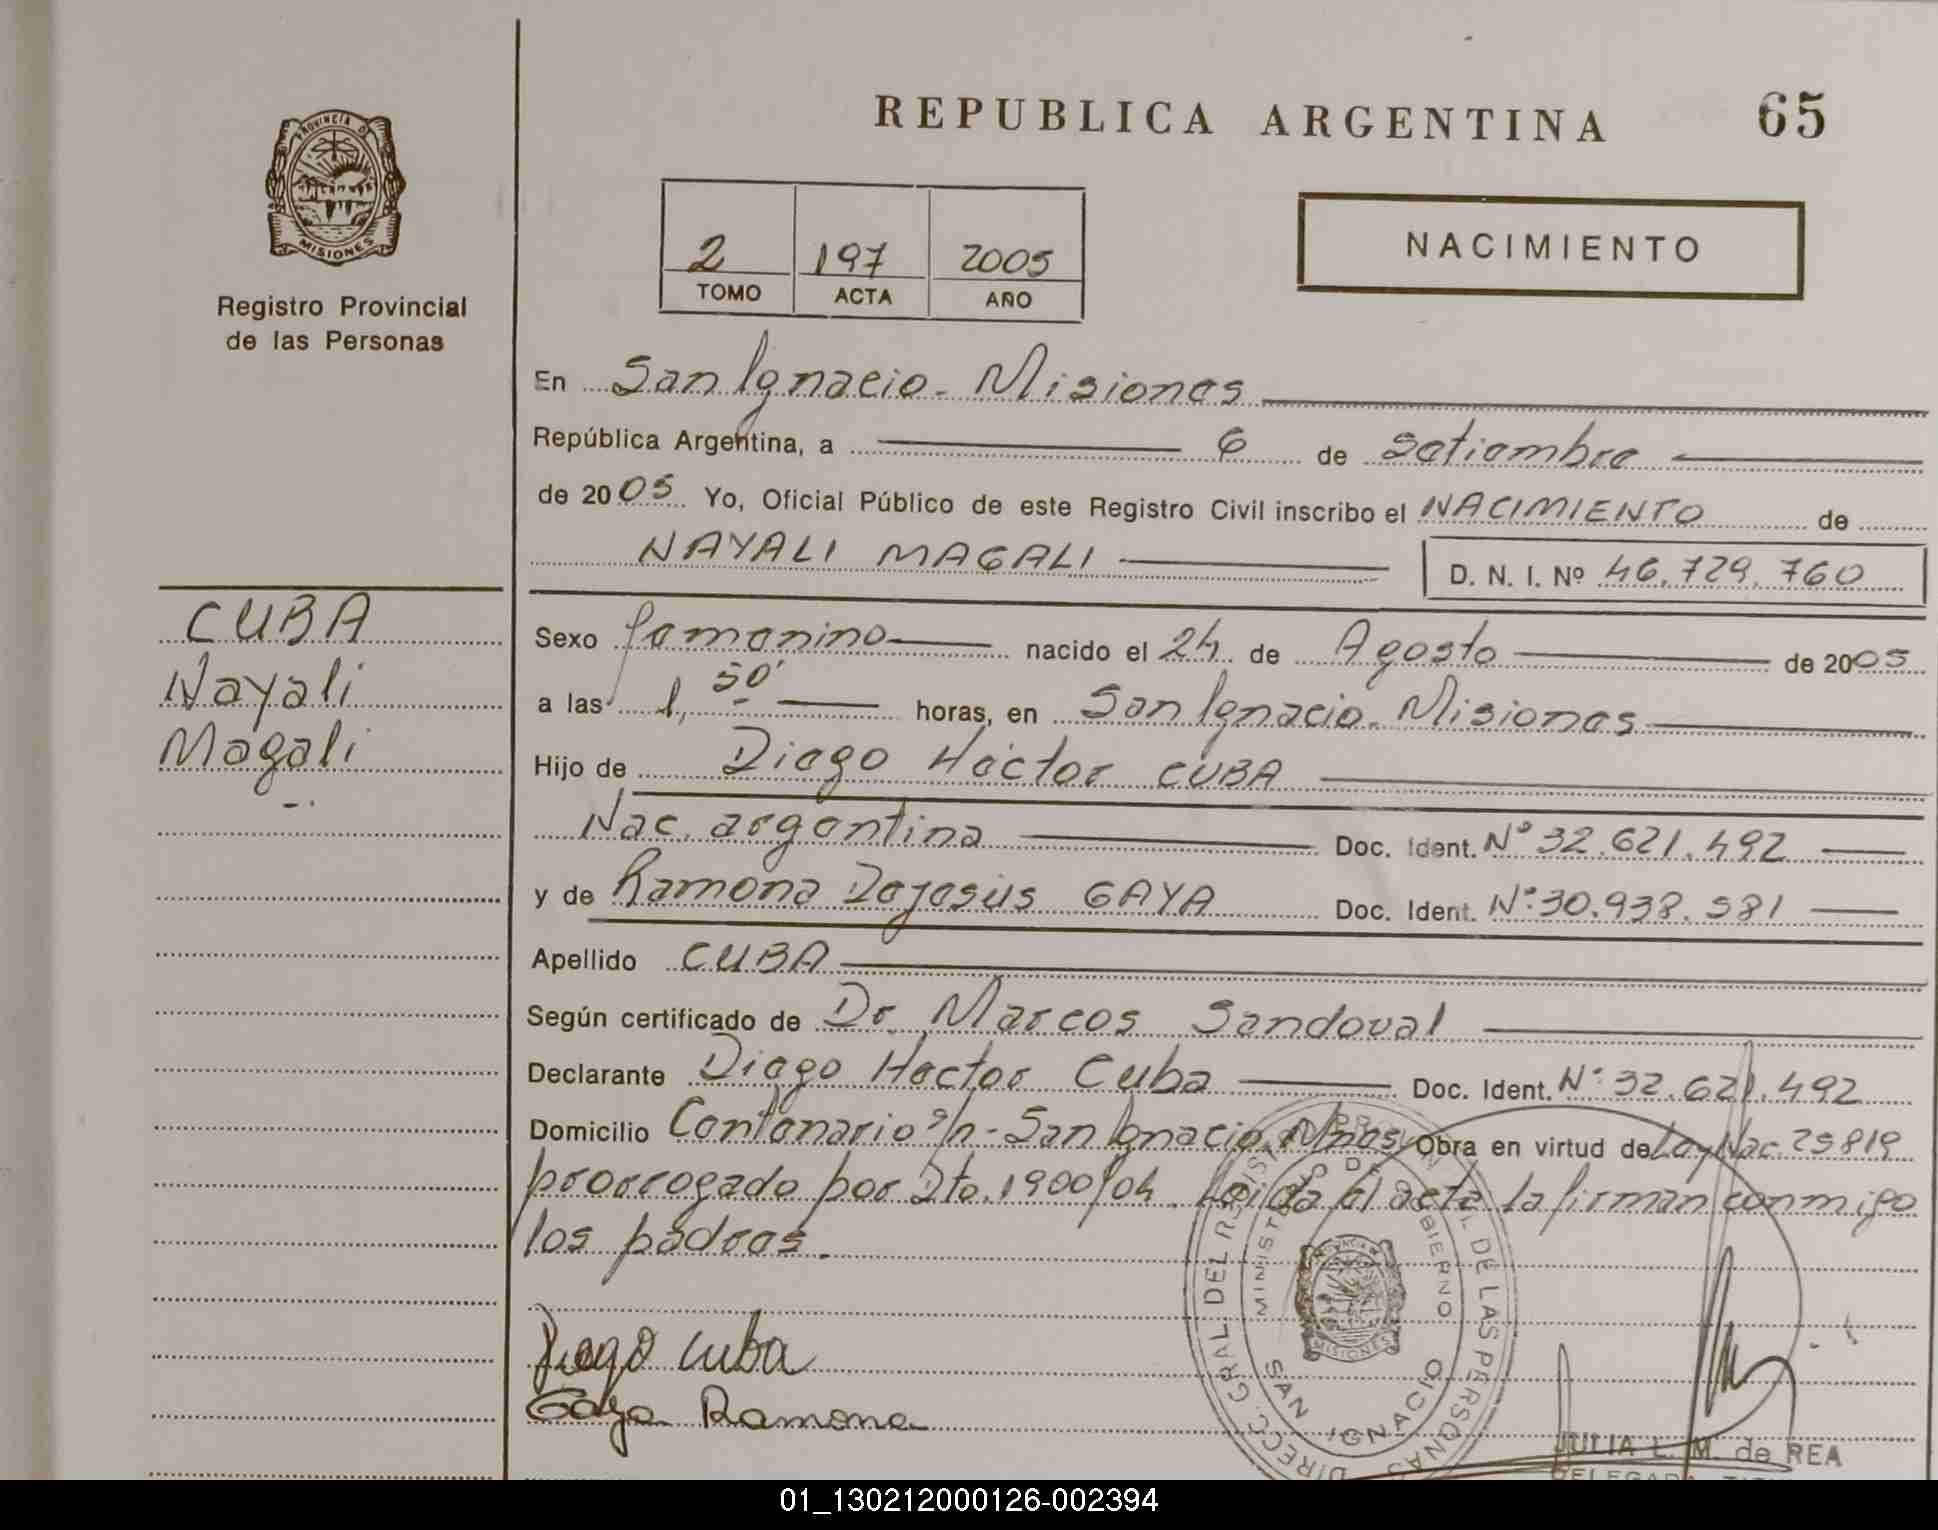 REPUBLICA ARGENTINA 65
PROVINCIA DE
MISIONES
Registro Provincial
de las Personas
2 197 2005
TOMO ACTA AÑO
NACIMIENTO
En San Ignacio - Misiones
República Argentina, a 6 de Setiembre
de 2005 Yo, Oficial Público de este Registro Civil inscribo el NACIMIENTO de
NAYALI MAGALI D. N. I. Nº 46.729.760
CUBA
Nayali
Magali
Sexo femenino nacido el 24 de Agosto de 2005
a las 1,50' horas, en San Ignacio - Misiones
Hijo de Diego Héctor CUBA
Nac. argentina Doc. Ident. Nº 32.621.492
y de Ramona Dejesús GAYA Doc. Ident. Nº 30.938.581
Apellido CUBA
Según certificado de Dr. Marcos Sandoval
Declarante Diego Hector Cuba Doc. Ident. Nº 32.621.492
Domicilio Centenario s/n - San Ignacio, Mnes, Obra en virtud de Ley Nac. 25819
prorrogado por Dto. 1900/04. Leída el acta la firman conmigo
los padres.
Diego Cuba
Gaya Ramona
MINISTERIO DE GOBIERNO
SAN IGNACIO
MISIONES
JULIA L. M. de REA
01_130212000126-002394